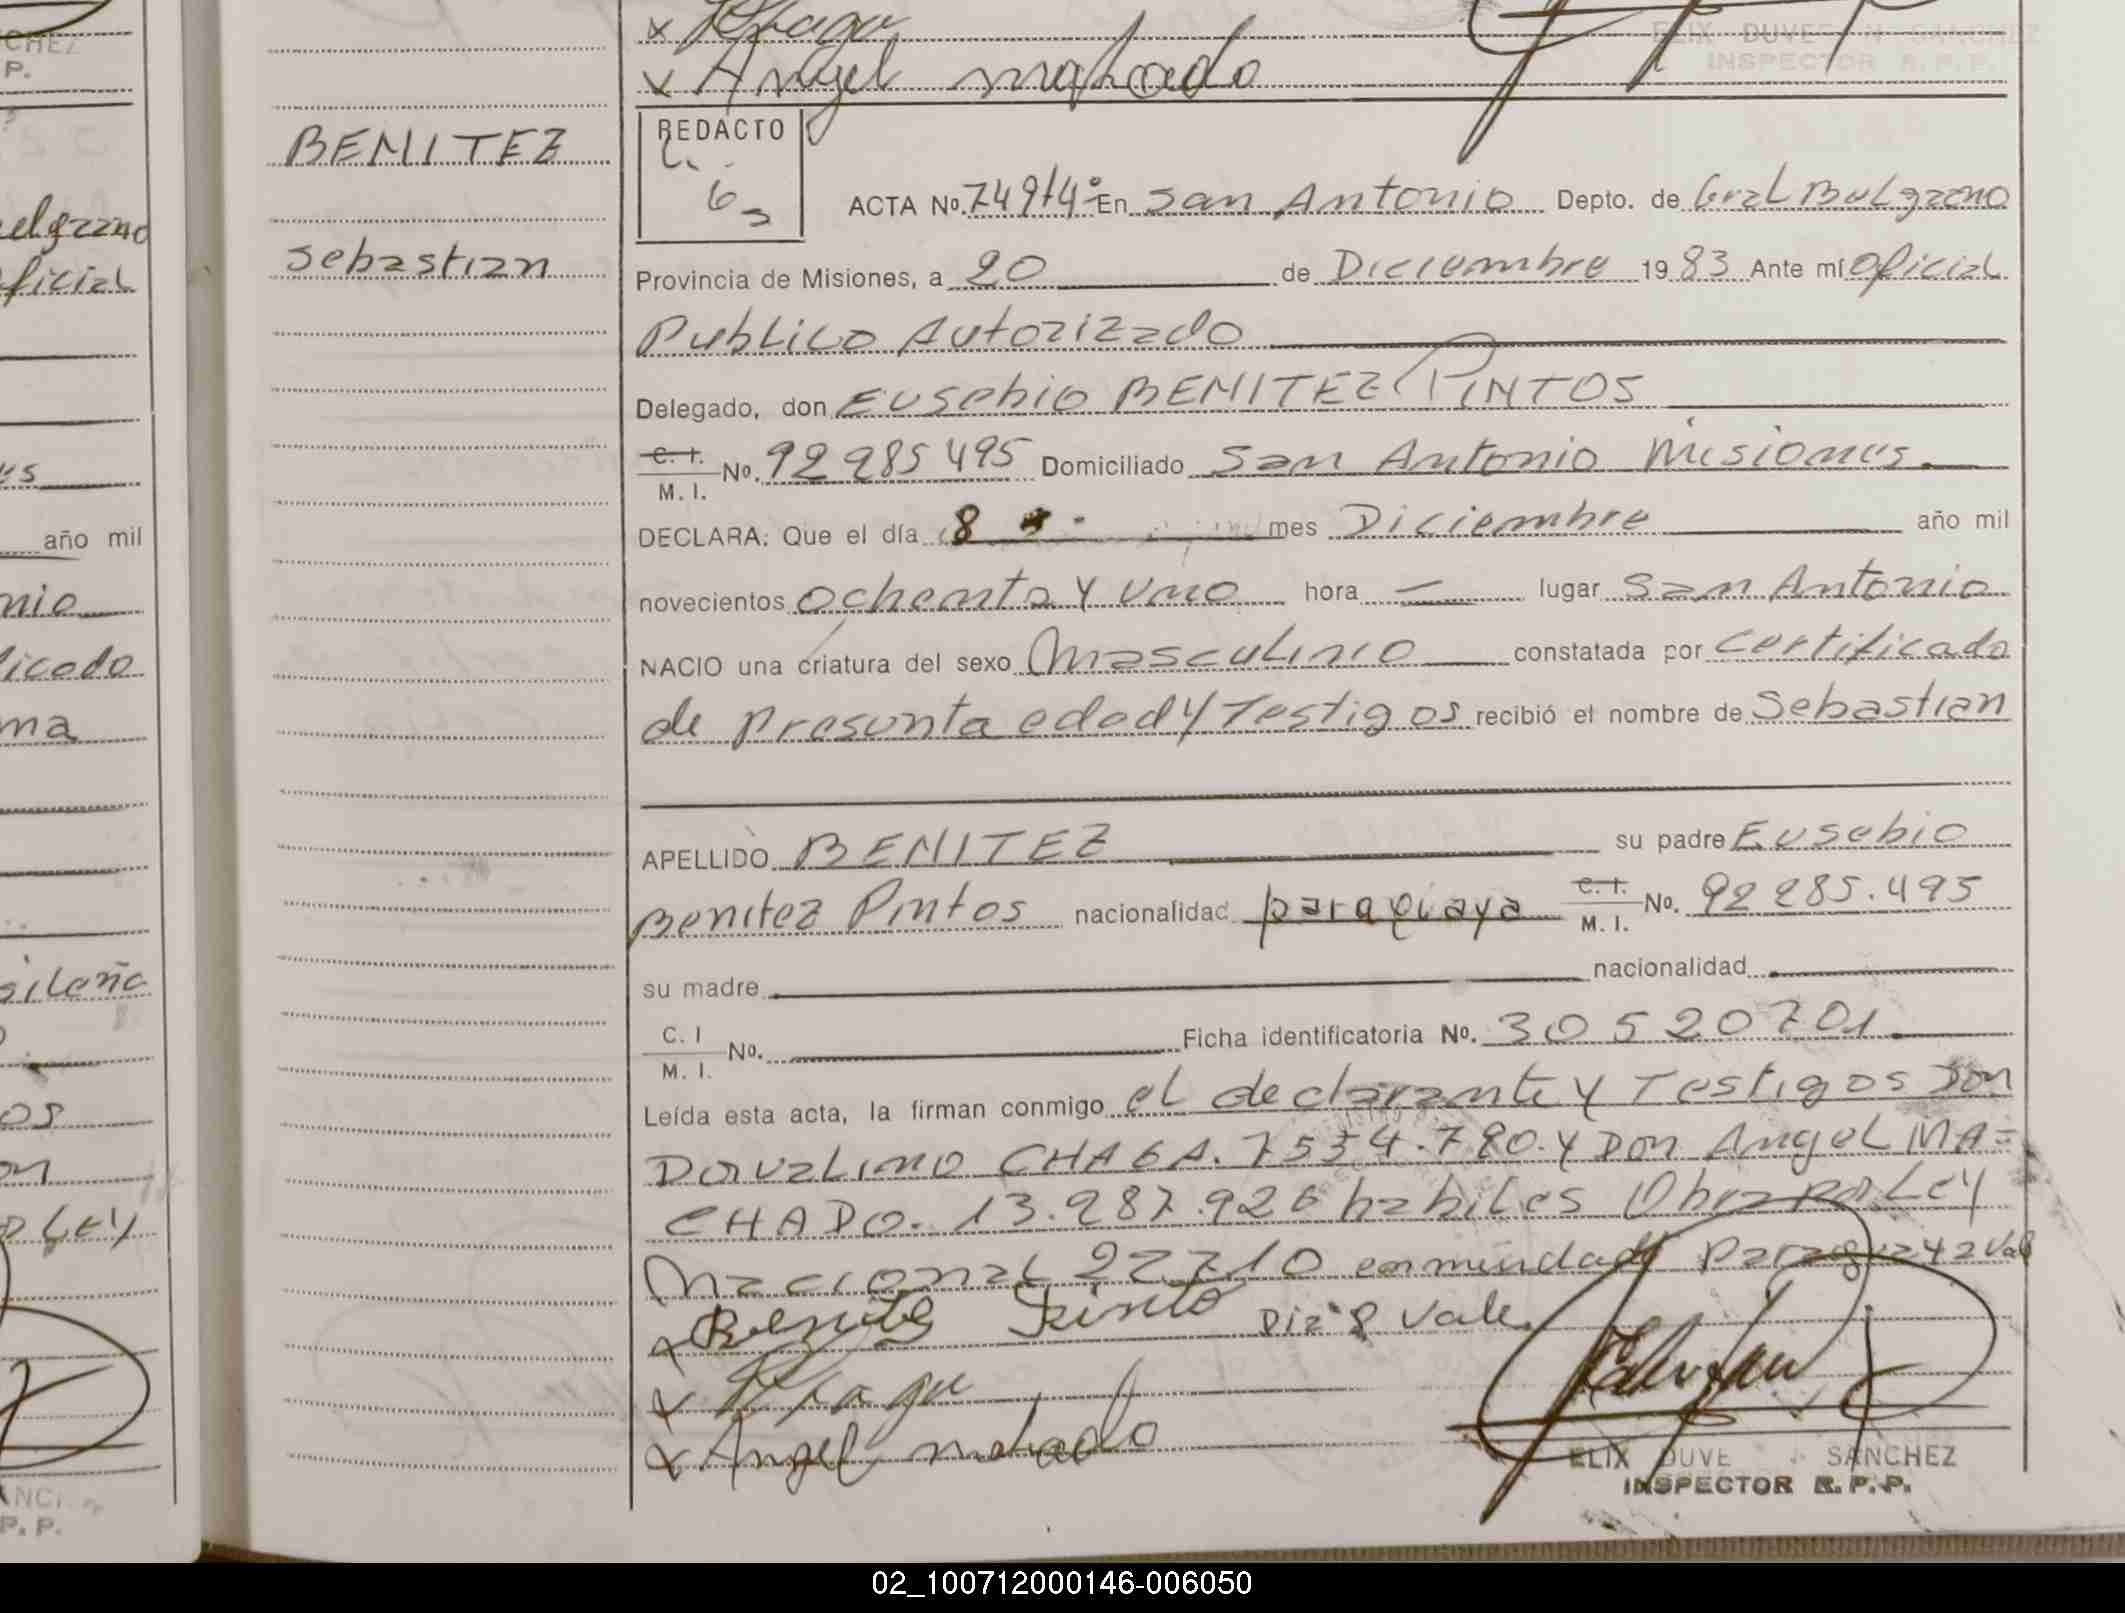 Chaga
Angel machado
ELIX DUVE N SANCHEZ
INSPECTOR R.P.P.
CHEZ
P.
elgrano
ficial
es
año mil
nio
ficado
ma
sileña
os
on
LEY
P. P.
BENITEZ
Sebastian
REDACTO
ACTA No. 749T4º En San Antonio Depto. de Gral Belgrano
Provincia de Misiones, a 20 de Diciembre 1983 Ante mí Oficial
Publico Autorizado
Delegado, don Eusebio BENITEZ PINTOS
C. I. M. I. No. 92 285 495 Domiciliado San Antonio Misiones.
DECLARA: Que el día 8 mes Diciembre año mil
novecientos ochenta y uno hora — lugar San Antonio
NACIO una criatura del sexo Masculino constatada por certificado
de presunta edad y Testigos recibió el nombre de Sebastian
APELLIDO BENITEZ su padre Eusebio
Benitez Pintos nacionalidad paraguaya C. I. M. I. No. 92 285.495
su madre nacionalidad
C. I M. I. No. Ficha identificatoria No. 30520701
Leída esta acta, la firman conmigo el declarante y Testigos Don
Dorvalino CHAGA. 7534.780. y Don Angel MA=
CHADO. 13.287.926 habiles Obra por Ley
Nacional 22710 enmendado Paraguaya Vale
Benites Pinto Dia 8 Vale.
Chaga
Angel machado
ELIX DUVE SANCHEZ
INSPECTOR R.P.P.
02_100712000146-006050